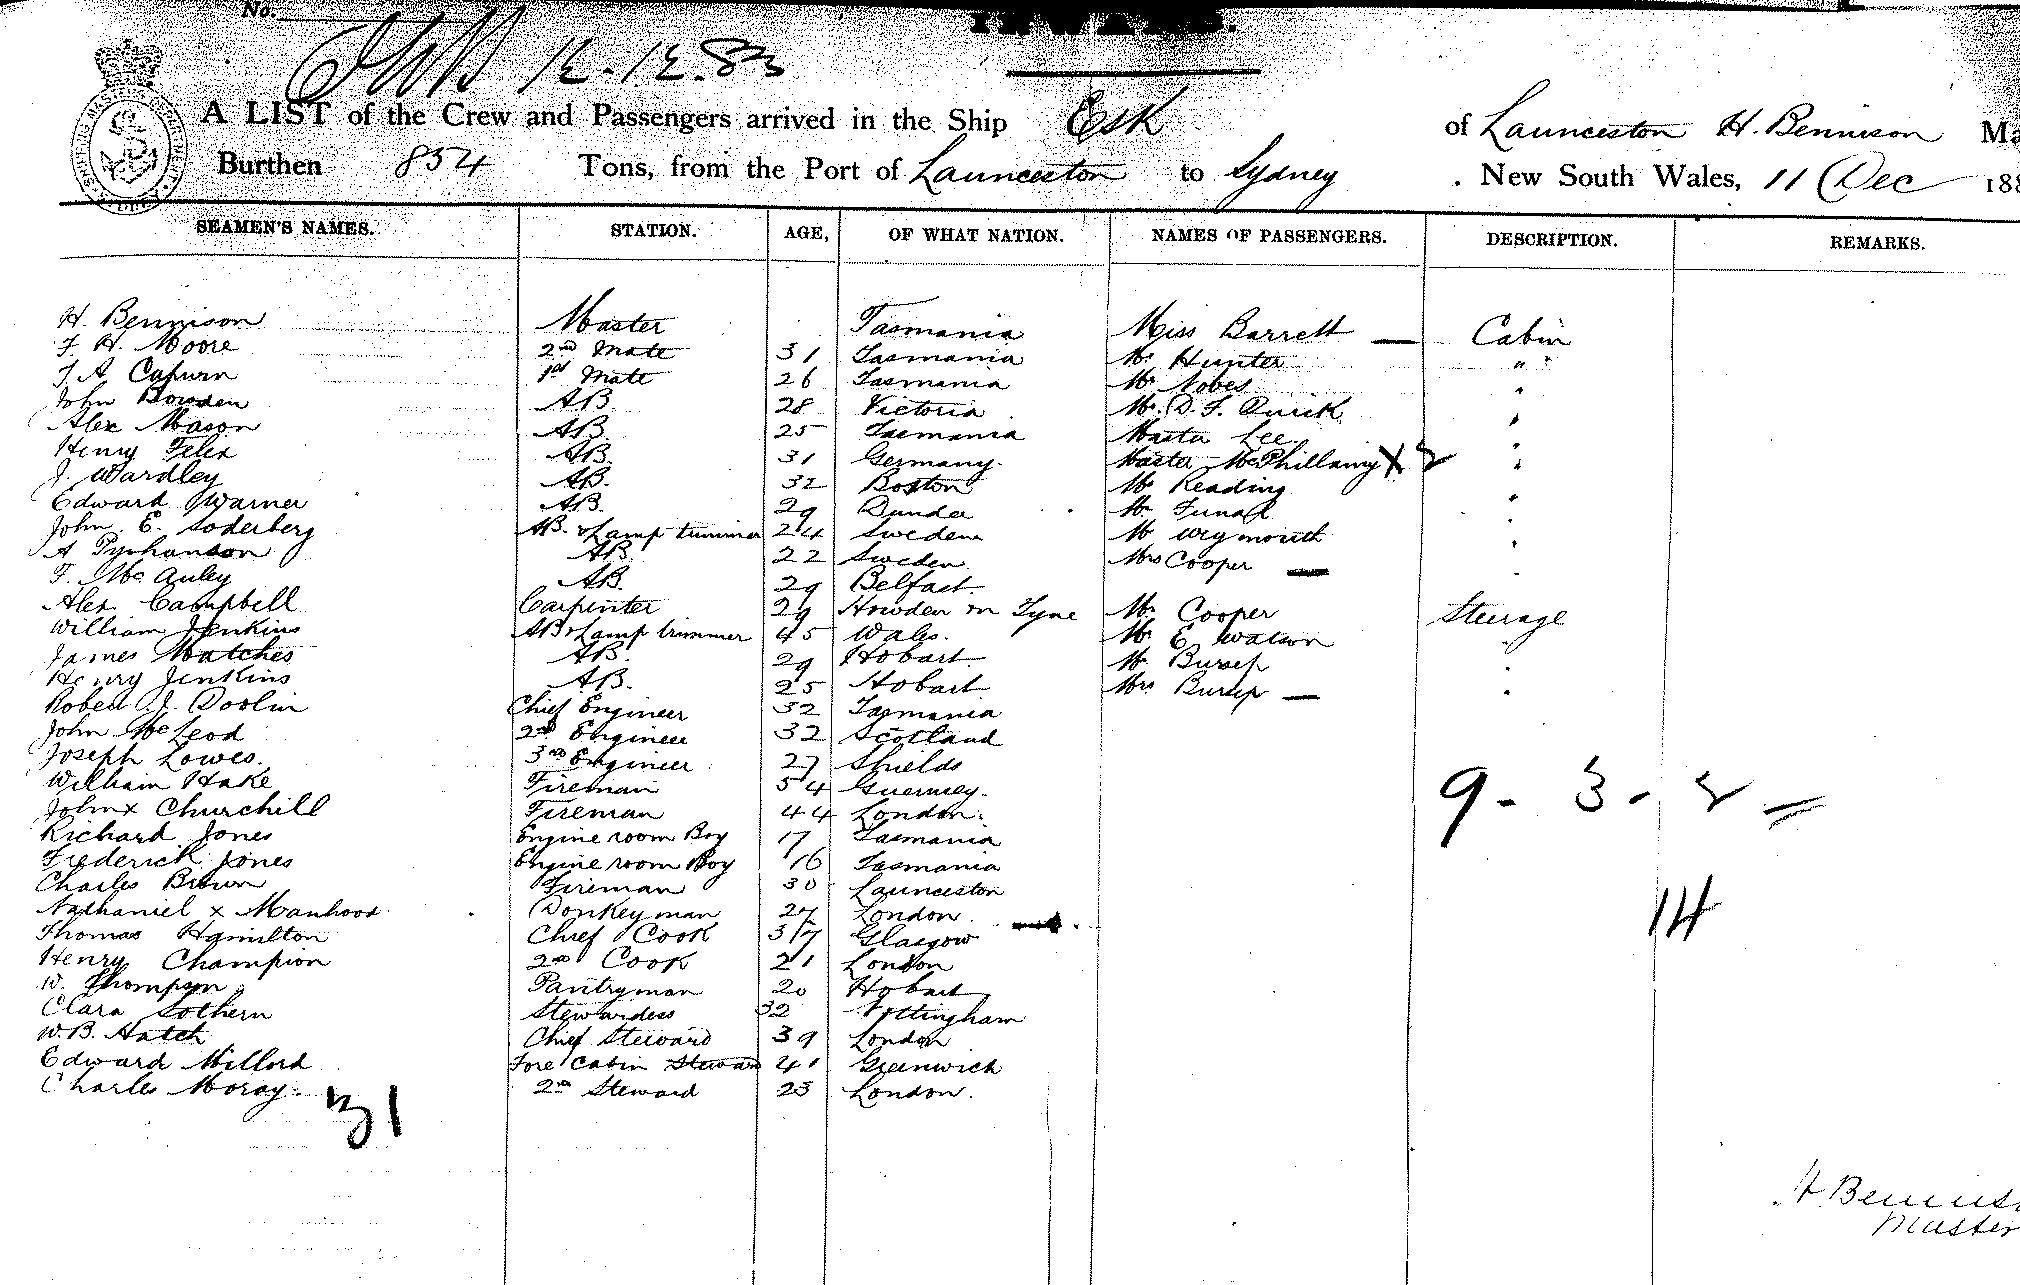 No.
INWARD.
12.12.83
A LIST of the Crew and Passengers arrived in the Ship Esk of Launceston H. Bennison Ma
Burthen 854 Tons, from the Port of Launceston to Sydney New South Wales, 11 Dec 188
SEAMEN'S NAMES. STATION. AGE, OF WHAT NATION. NAMES OF PASSENGERS. DESCRIPTION. REMARKS.
H. Bennison Master Tasmania Miss Barrett — Cabin
F. H. Moore 2nd Mate 31 Tasmania Mr Hunter " "
J. A. Capurn 1st Mate 26 Tasmania Mr Nobes "
John Bowden AB. 28 Victoria Mr. D. F. Quick "
Alex Mason AB 25 Tasmania Master Lee "
Henry Felix AB. 31 Germany. Master McPhillamy X 2 "
J. Wardley AB. 32 Boston Mr Reading "
Edward Warner AB. 29 Dundee Mr "
John E. Soderberg AB. & Lamp trimmer 24 Sweden Mr Weymouth "
A AB. 22 Sweden. Mrs Cooper — "
F. McAuley AB. 29 Belfast
Alex Campbell Carpinter 29 Howden on Tyne Mr Cooper Steerage
William Jenkins AB & Lamp trimmer 45 Wales. Mr E Watson "
James Matches AB. 29 Hobart Mr Bursep "
Henry Jenkins AB. 25 Hobart Mrs Bursep — "
Robert J. Doolin Chief Engineer 32 Tasmania
John McLeod 2nd Engineer 32 Scotland
Joseph Lowes. 3rd Engineer 27 Shields
William Hake Fireman 54 Guernsey.
John x Churchill Fireman 44 London.
9 - 3 - 2 =
Richard Jones Engine room Boy 17 Tasmania
Frederick Jones Engine room Boy 16 Tasmania
Charles Brown Fireman 30 Launceston
Nathaniel x Manhood Donkeyman 27 London.
14
Thomas Hamilton Chief Cook 37 Glasgow
Henry Champion 2nd Cook 21 London
W. Thompson Pantryman 20 Hobart
Clara Sothern Stewardess 32 Nottingham
W. B. Hatch Chief Steward 39 London
Edward Millord Fore Cabin Steward 41 Greenwich
Charles Moray. 2nd Steward 23 London.
31
H Bennis
Master